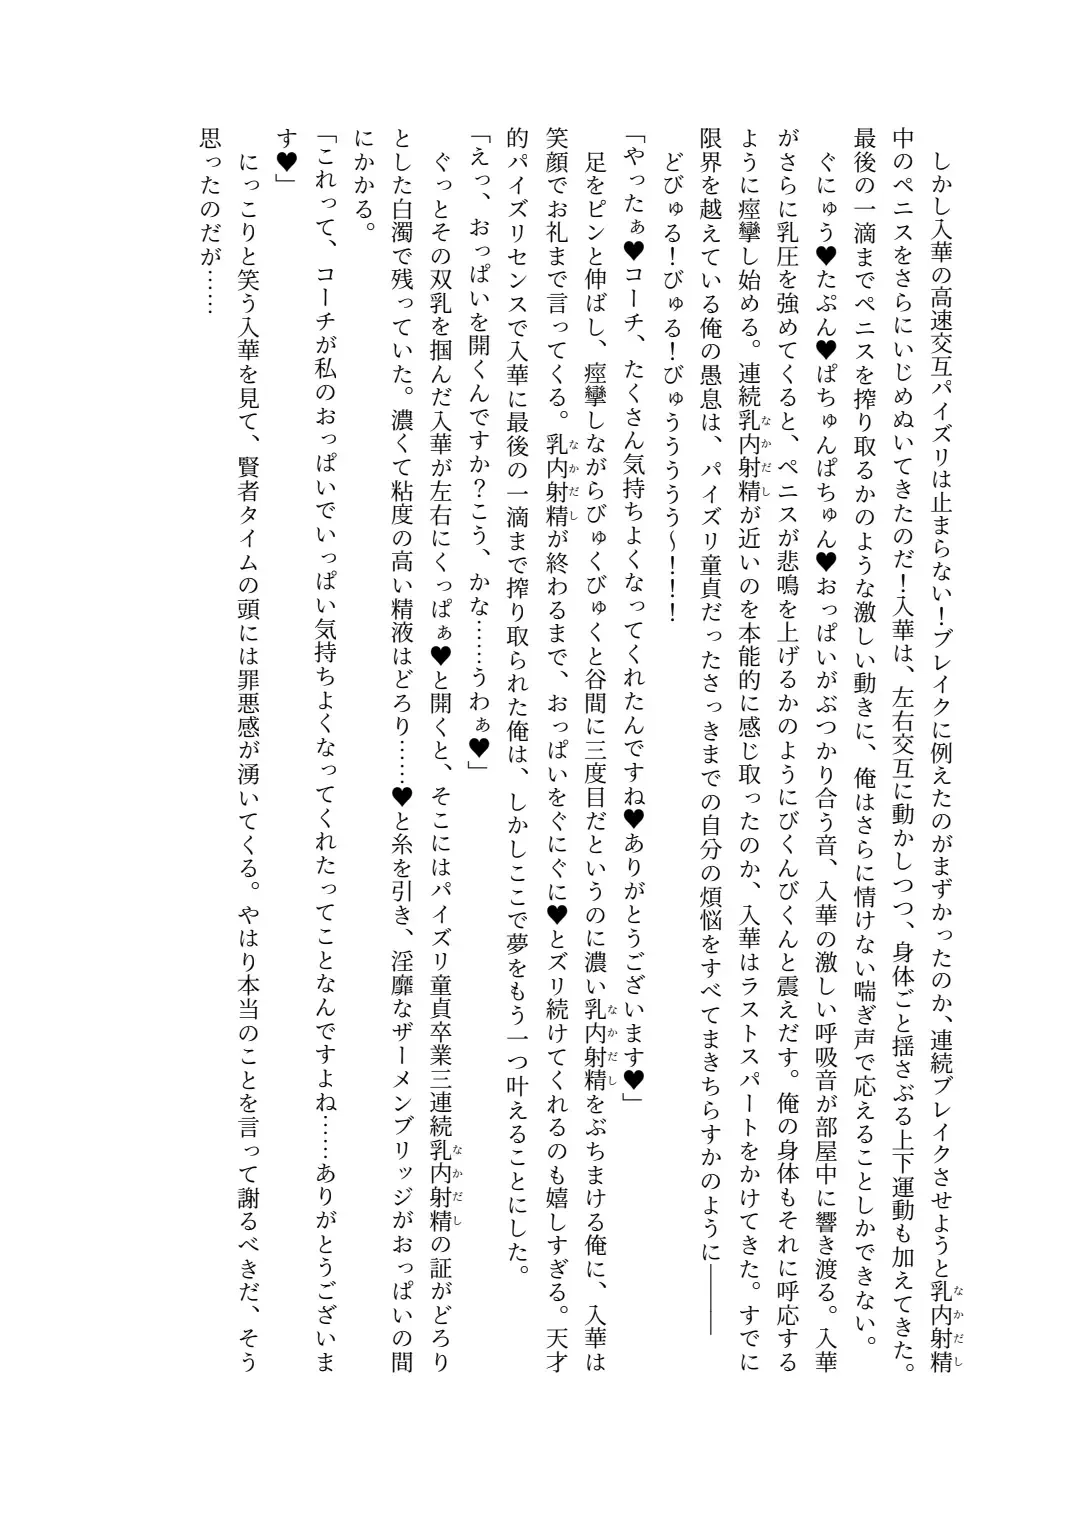 しかし入華の高速交互パイズリは止まらない！ブレイクに例えたのがまずかったのか、連続ブレイクさせようと乳内射精
中のペニスをさらにいじめぬいてきたのだ！入華は、左右交互に動かしつつ、身体ごと揺さぶる上下運動も加えてきた。
最後の一滴までペニスを搾り取るかのような激しい動きに、俺はさらに情けない喘ぎ声で応えることしかできない。
ぐにゅう♥たぷん♥ぱちゅんぱちゅん♥おっぱいがぶつかり合う音、入華の激しい呼吸音が部屋中に響き渡る。入華
がさらに乳圧を強めてくると、ペニスが悲鳴を上げるかのようにびくんびくんと震えだす。俺の身体もそれに呼応する
ように痙攣し始める。連続乳内射精が近いのを本能的に感じ取ったのか、入華はラストスパートをかけてきた。すでに
限界を越えている俺の愚息は、パイズリ童貞だったさっきまでの自分の煩悩をすべてまきちらすかのように―――
どびゅる！びゅる！びゅうううう～！！！
「やったぁ♥コーチ、たくさん気持ちよくなってくれたんですね♥ありがとうございます♥」
足をピンと伸ばし、痙攣しながらびゅくびゅくと谷間に三度目だというのに濃い乳内射精をぶちまける俺に、入華は
笑顔でお礼まで言ってくる。乳内射精が終わるまで、おっぱいをぐにぐに♥とズリ続けてくれるのも嬉しすぎる。天才
的パイズリセンスで入華に最後の一滴まで搾り取られた俺は、しかしここで夢をもう一つ叶えることにした。
「えっ、おっぱいを開くんですか？こう、かな……うわぁ♥」
ぐっとその双乳を掴んだ入華が左右にくっぱぁ♥と開くと、そこにはパイズリ童貞卒業三連続乳内射精の証がどろり
とした白濁で残っていた。濃くて粘度の高い精液はどろり……♥と糸を引き、淫靡なザーメンブリッジがおっぱいの間
にかかる。
「これって、コーチが私のおっぱいでいっぱい気持ちよくなってくれたってことなんですよね……ありがとうございま
す♥」
にっこりと笑う入華を見て、賢者タイムの頭には罪悪感が湧いてくる。やはり本当のことを言って謝るべきだ、そう
思ったのだが……